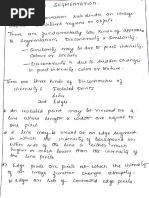 SEGMENTATION
Segmentation subdivides an image
into its constituent regions or objects.
There are fundamentally two kinds of approach
to Segmentation: Discontinuity & Similarity
- Similarity may be due to pixel intensity,
colour or texture.
- Discontinuity is due to sudden changes
in pixel intensity, colour or texture.
There are three kinds of Discontinuities of
intensity: Isolated points
Lines
and Edges
An isolated point may be viewed as a
line whose length & width are equal to
one pixel.
A line may be viewed as an edge segment
in which the intensity of background on
either side of the line is either much
higher or much lower than the intensity of
line pixel.
Edge pixels are pixels at which the intensity
of an image function changes abruptly.
& edges are set of connected edge pixels.